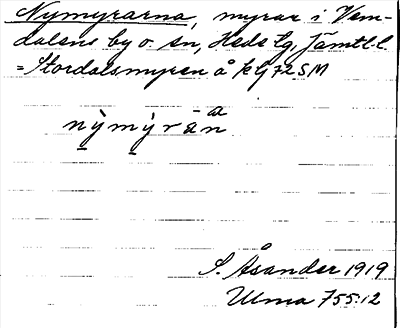 Nymyrarna, myrar i Vem-
dalens by o. sn, Hede tg, Jämtl. l.
= Stordalsmyren å k bl 72 SM
nỳmýrān
S. Åsander 1919
Ulma 755:12